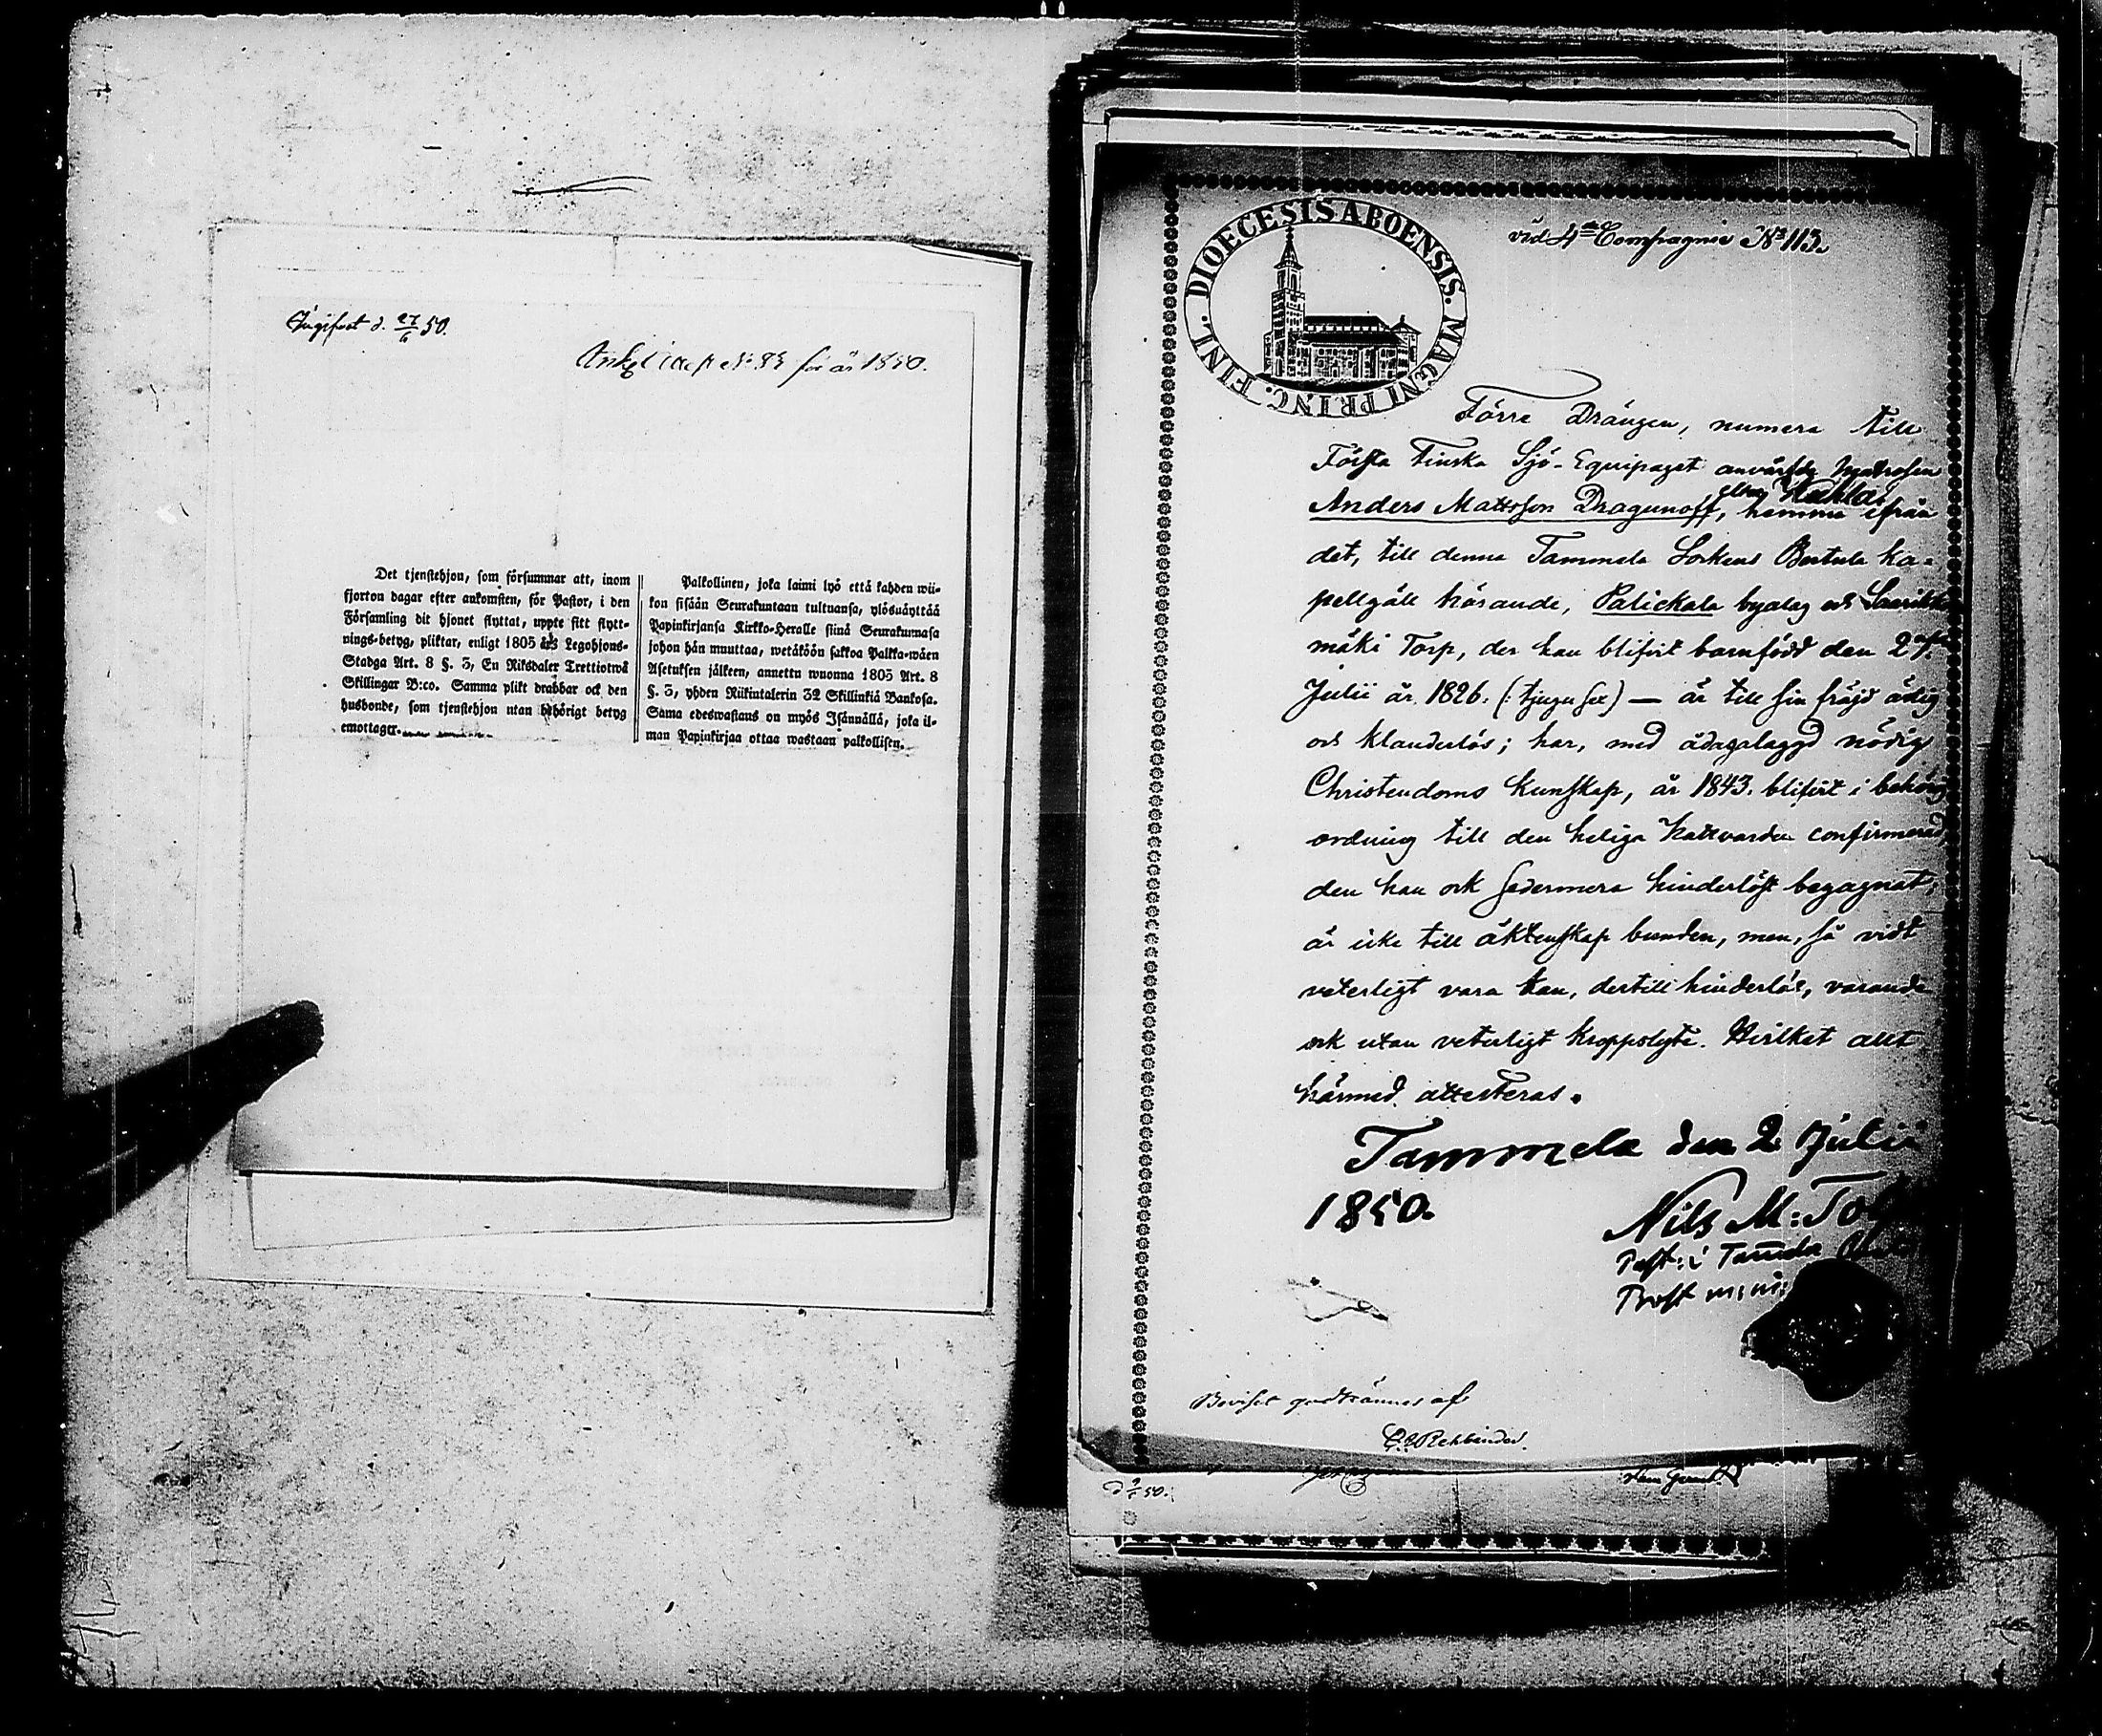 Ingifvet d. 27/6 50.
Ankl: i Att № 83 för år 1850.
Det tjenstehjon, som försummar att, inom
fjorton dagar efter ankomsten, för Pastor, i den
Församling dit hjonet flyttat, uppte sitt flytt-
nings-betyg, pliktar, enligt 1805 års Legohjons-
Stadga Art. 8 §. 3, En Riksdaler Trettiotwå
Skillingar B:co. Samma plikt drabbar ock den
husbonde, som tjenstehjon utan behörigt betyg
emottager.
Palkollinen, joka laimi lyö että kahden wii-
kon sisään Seurakuntaan tultuansa, ylösnäyttää
Papinkirjansa Kirkko-Heralle siinä Seurakunnasa
johon hän muuttaa, wetäköön sakkoa Palkka-wäen
Asetuksen jälkeen, annettu wuonna 1805 Art. 8
§. 3, yhden Riikintalerin 32 Skillinkiä Bankosa.
Sama edeswastaus on myös Isännällä, joka il-
man Papinkirjaa ottaa wastaan palkollisen.
DIOECESIS ABOENSIS. MAGNI PRINC. FINL.
vid 4de Compagnie № 113.
Förre Drängen, numera till
Första Finska Sjö-Equipaget anvärfde Matrosen
eller
Anders Mattsson Dragunoff, hemma ifrån
det, till denna Tammela Sockens Bertula ka-
pellgäll hörande, Palickala byalag och
mäki Torp, der han blifvit barnfödd den 27.
Julii år 1826. (: tjugu sex) — är till sin fräjd ärlig
och klanderlös; har, med ådagalaggd nödig
Christendoms kunskap, år 1843. blifvit i behörig
ordning till den heliga Nattvarden confirmerad,
den han ock sedermera hinderlöst begagnat;
är icke till äktenskap bunden, men, så vidt
veterligt vara kan, dertill hinderlös, varande
ock utan veterligt kroppslyte. Hvilket allt
härmed attesteras.
Tammela den 2 Julii
1850.
Nils M: Tol
Past: i Tammela
Prost
Beviset godkännes af
C: E Rehbinder.